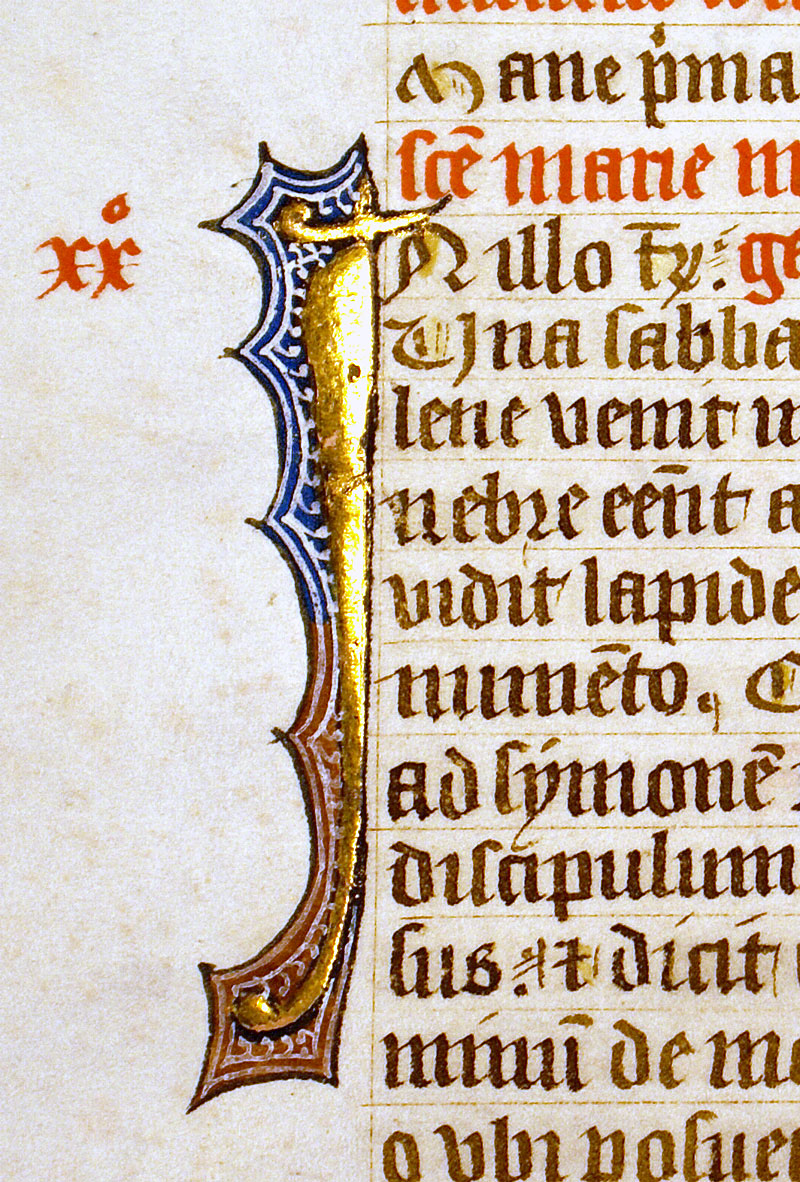 Mane p̄ma
xx°
sc̄e marie m
IN illo t̄p̄. se
Una sabba
lene venit m
nebre eēnt a
vidit lapide
numēto. C
ad symonē
discipulum
sus. et dicit
minū de mo
o vbi posue